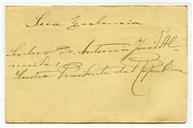 Sua Excelencia
Senhor Dr. Antonio José d'Al-
meida,
Ilustre Presidente da Republica